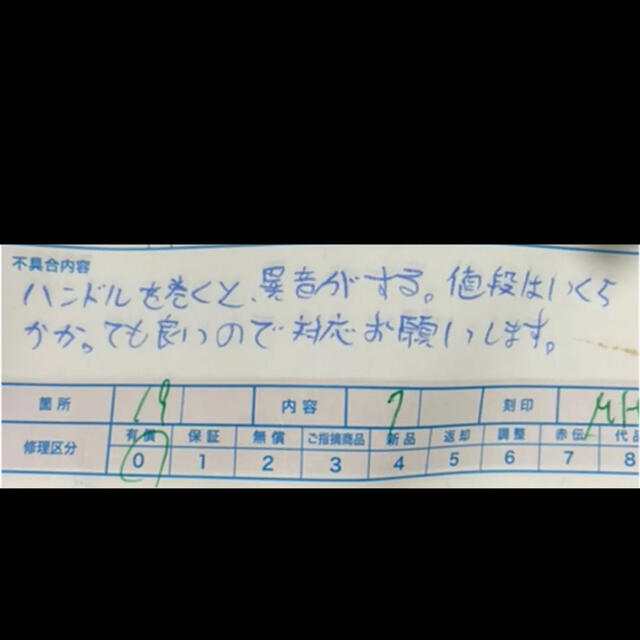 不具合内容
ハンドルを巻くと、異音がする。値段はいくら
かかっても良いので対応お願いします。
箇所 19 内容 7 刻印
修理区分 有償 保証 無償 ご指摘商品 新品 返却 調整 赤伝 代品
0 1 2 3 4 5 6 7 8